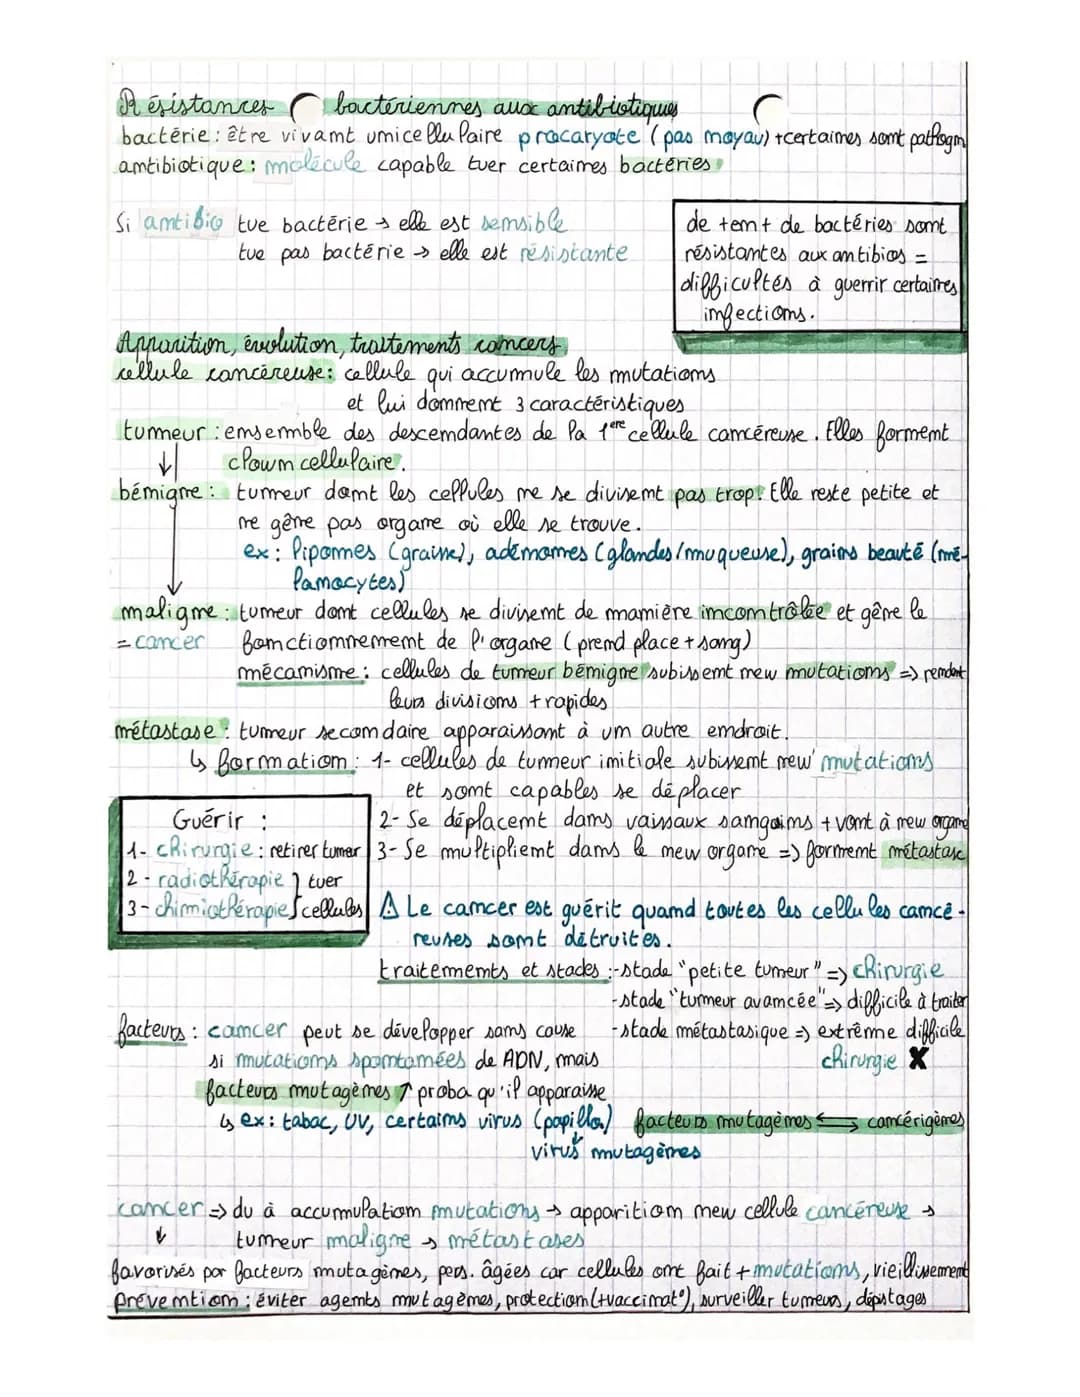 Résistances bactériennes aux antibiotiques
bactérie : être vivant unicellulaire procaryote (pas noyau) + certaines sont pathogn
antibiotique : molécule capable tuer certaines bactéries
Si antibio tue bactérie → elle est sensible
tue pas bactérie → elle est résistante
de + en + de bactéries sont
résistantes aux antibios =
difficultés à guerrir certaines
infections.
Apparition, évolution, traitements cancers
cellule cancéreuse : cellule qui accumule les mutations
et lui donnent 3 caractéristiques
tumeur : ensemble des descendantes de la 1ere cellule cancéreuse. Elles forment
clown cellulaire.
bénigne : tumeur dont les cellules ne se divisent pas trop. Elle reste petite et
ne gêne pas organe où elle se trouve.
ex : lipomes (graisse), adénomes (glandes/muqueuse), grains beauté (mé-
lanocytes)
maligne : tumeur dont cellules se divisent de manière incontrôlée et gêne le
= cancer fonctionnement de l'organe (prend place + sang)
mécanisme : cellules de tumeur bénigne subissent new mutations => rendent
leurs divisions + rapides
métastase : tumeur secondaire apparaissant à un autre endroit.
↳ formation : 1- cellules de tumeur initiale subissent new mutations
et sont capables se déplacer
2- Se déplacent dans vaissaux sanguins + vont à new organe
3- Se multiplient dans le new organe => forment métastase
Guérir :
1- chirurgie : retirer tumeur
2- radiothérapie } tuer
3- chimiothérapie } cellules
⚠ Le cancer est guérit quand toutes les cellules cancé-
reuses sont détruites.
traitements et stades : -stade "petite tumeur" => chirurgie
-stade "tumeur avancée" => difficile à traiter
-stade métastasique => extrême difficile
chirurgie X
facteurs : cancer peut se développer sans cause
si mutations spontanées de ADN, mais
facteurs mutagènes ↑ proba qu'il apparaisse
↳ ex : tabac, UV, certains virus (papillo.)
virus mutagènes
facteurs mutagènes ⇆ cancérigènes
cancer => du à accumulation mutations → apparition new cellule cancéreuse →
↓ tumeur maligne → métastases
favorisés par facteurs mutagènes, pers. âgées car cellules ont fait + mutations, vieillissement
prévention : éviter agents mutagènes, protection (+vaccinat°), surveiller tumeurs, dépistages